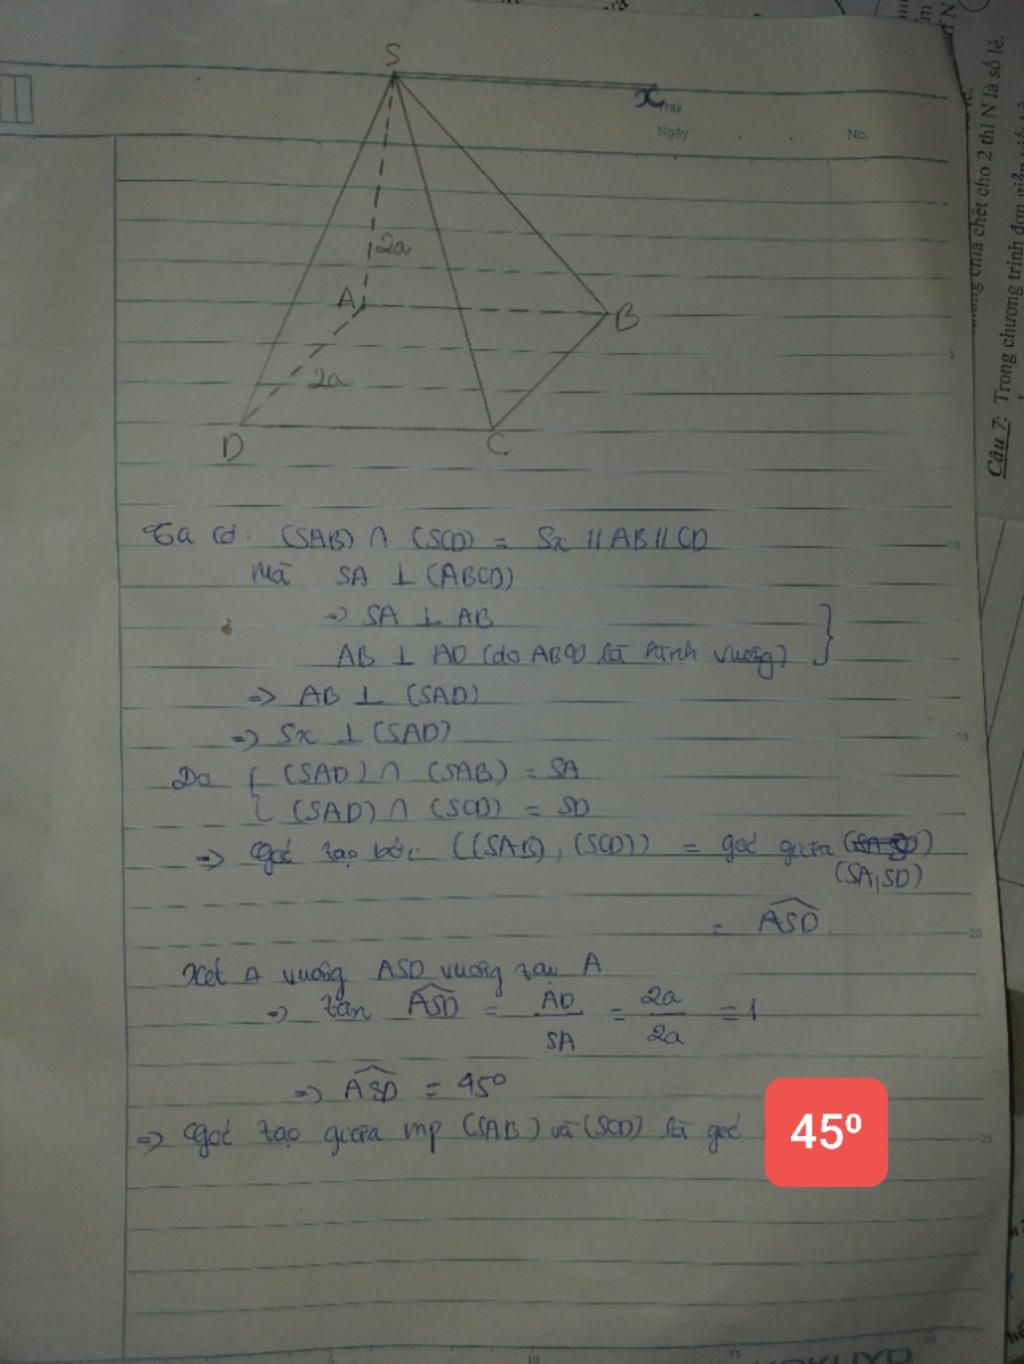 S
x
Thứ
Ngày
No.
2a
A
B
2a
D
C
Ta có: (SAB) ∩ (SCD) = Sx // AB // CD
Mà SA ⊥ (ABCD)
=> SA ⊥ AB
AB ⊥ AD (do ABCD là hình vuông)
=> AB ⊥ (SAD)
=> Sx ⊥ (SAD)
Do { (SAD) ∩ (SAB) = SA
(SAD) ∩ (SCD) = SD
=> Góc tạo bởi ((SAB), (SCD)) = góc giữa
(SA, SD)
= ASD
Xét Δ vuông ASD vuông tại A
=> tan ASD = AD/SA = 2a/2a = 1
=> ASD = 45°
=> Góc tạo giữa mp (SAB) và (SCD) là góc 45º
chia hết cho 2 thì N là số lẻ.
Câu 7: Trong chương trình đơn giản
5
10
15
20
25